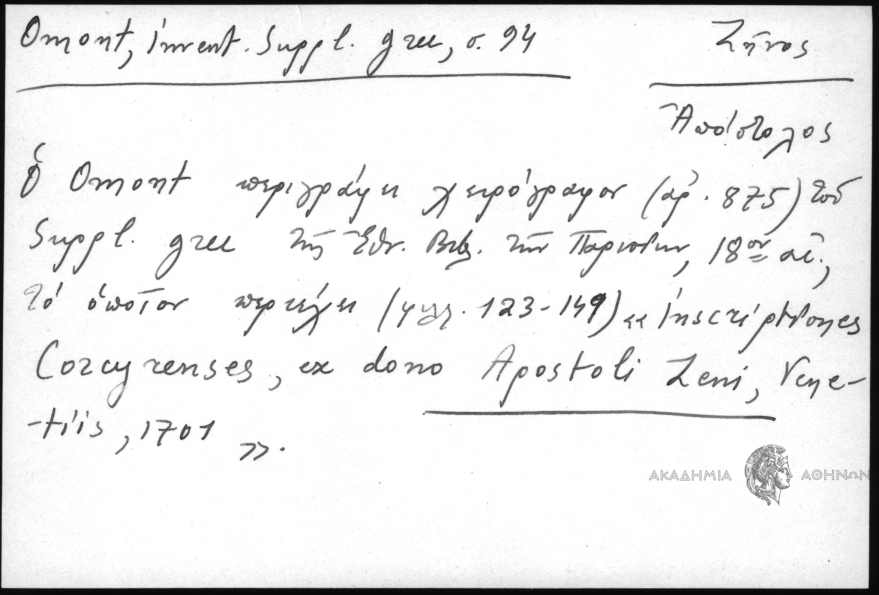 Omont, Invent. Suppl. grec, σ. 94
Ζῆνος
Ἀπόστολος
Ὁ Omont περιγράφει χειρόγραφον (ἀρ. 875) τοῦ
Suppl. grec τῆς Ἐθν. Βιβ. τῶν Παρισίων, 18ου αἰ.,
τὸ ὁποῖον περιέχει (φυλ. 123-149) «Inscriptiones
Corcyrenses, ex dono Apostoli Zeni, Vene-
-tiis, 1701».
ΑΚΑΔΗΜΙΑ ΑΘΗΝΩΝ